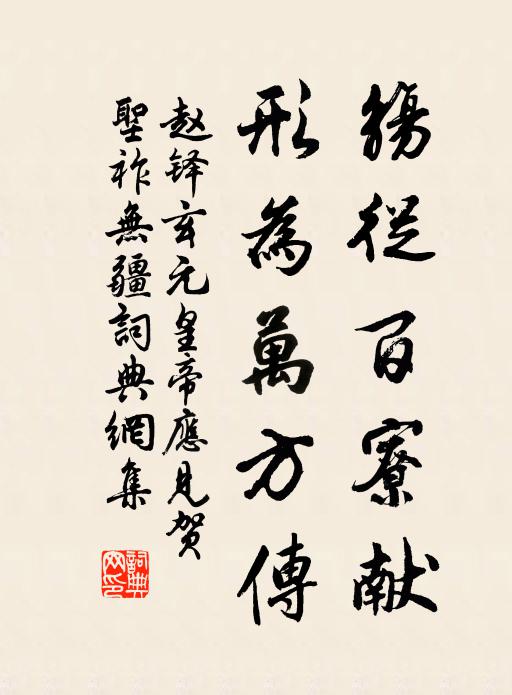 觴從百寮献
形為萬方傳
赵铎玄元皇帝應見贺
聖祚無疆詞典網集
詞典網印